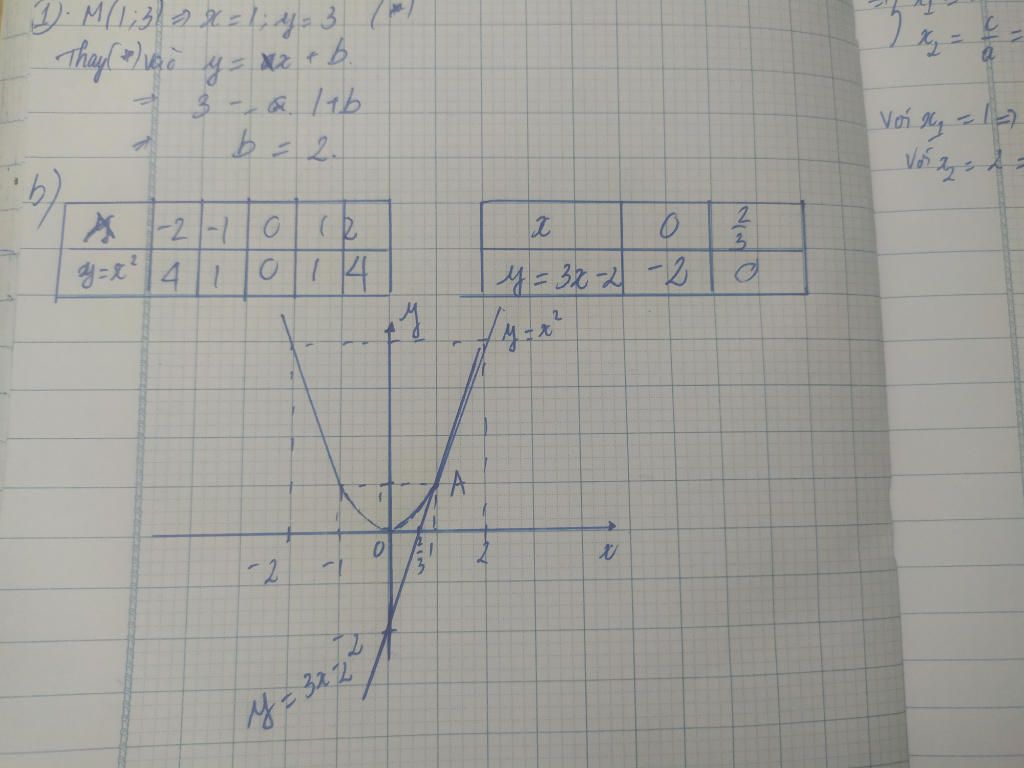 1). M(1;3) => x = 1; y = 3 (*)
Thay (*) vào y = x + b.
=> 3 = 1+b
=> b = 2.
b)
x -2 -1 0 1 2
y=x² 4 1 0 1 4
x 0 2/3
y = 3x-2 -2 0
y
y=x²
1
A
-2 -1 0 2/3 1 2 x
-2
y = 3x-2
x₂ = c/a =
Với x₁ = 1 =>
Với x₂ = 2 =